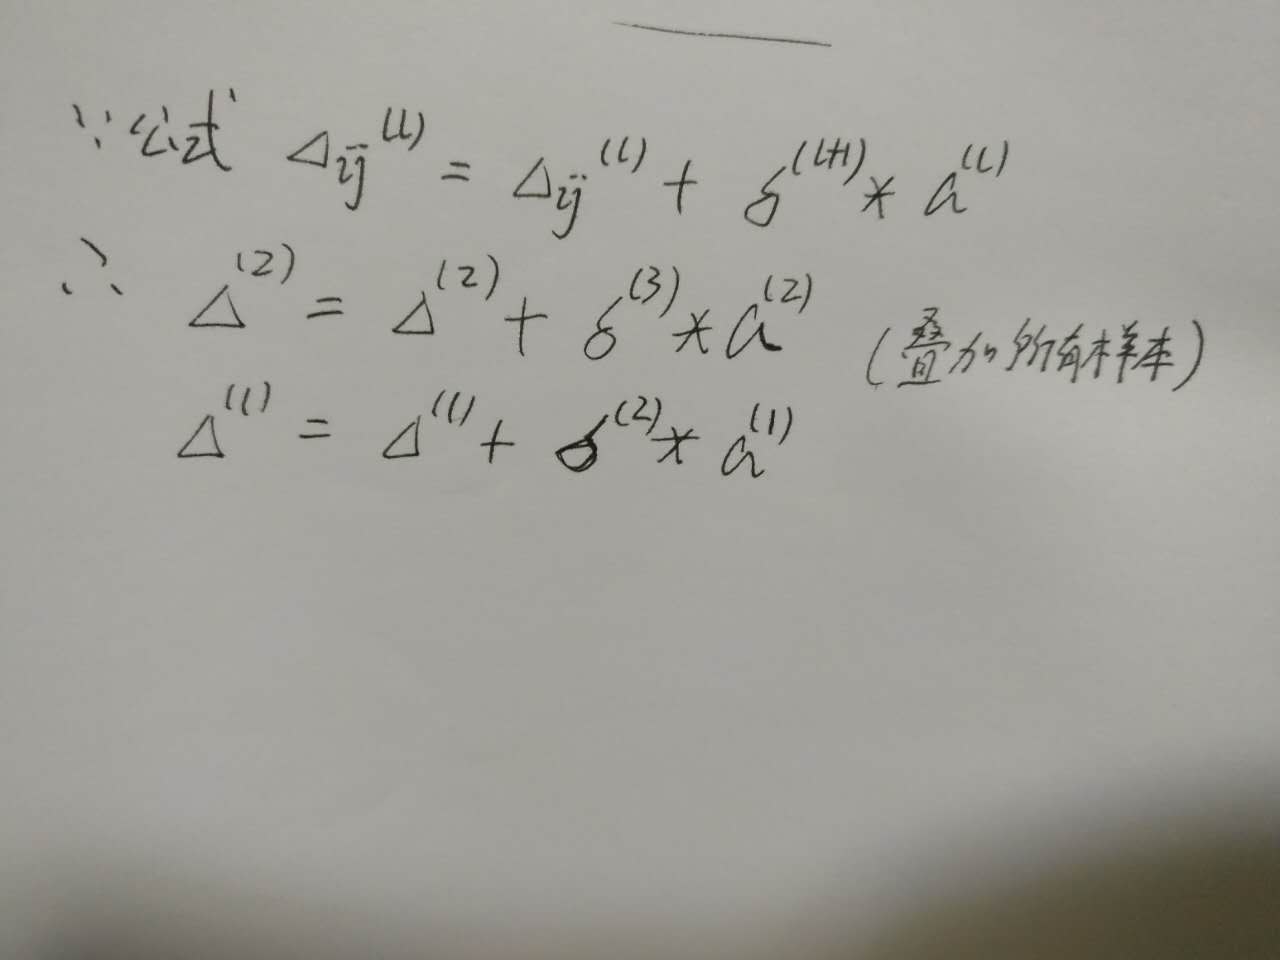 ∵ 公式 Δij^(l) = Δij^(l) + δ^(l+1) * a^(l)
∴ Δ^(2) = Δ^(2) + δ^(3) * a^(2) (叠加所有样本)
Δ^(1) = Δ^(1) + δ^(2) * a^(1)